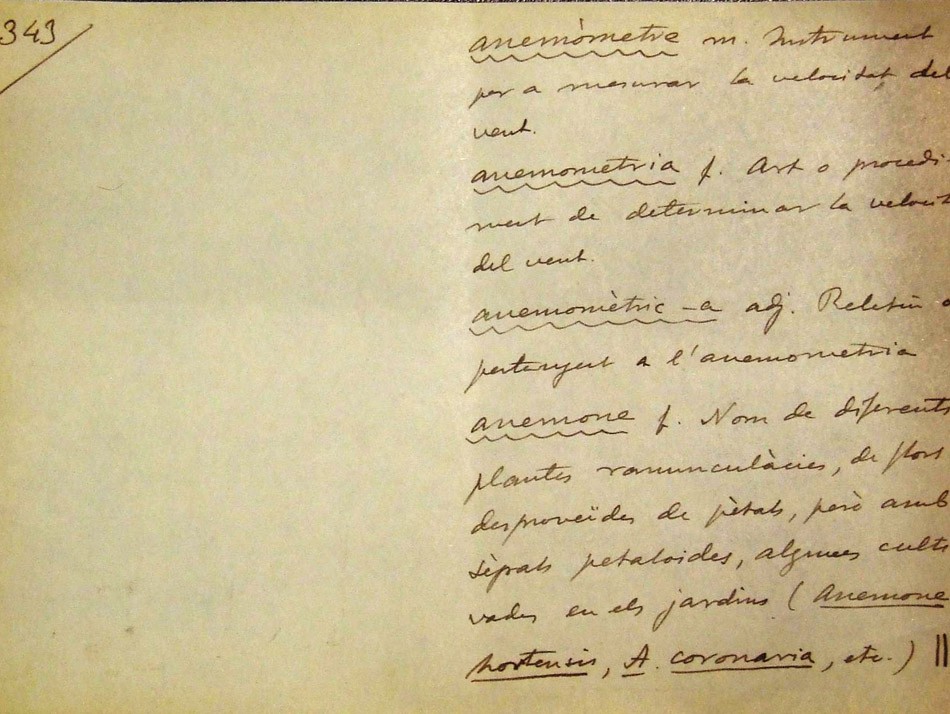 343
anemòmetre m. Instrument
per a mesurar la velocitat del
vent.
anemometria f. Art o procedi-
ment de determinar la velocit
del vent.
anemomètric -a adj. Relatiu o
pertanyent a l'anemometria
anemone f. Nom de diferents
plantes ranunculàcies, de flors
desproveïdes de pètals, però amb
sèpals petaloides, algunes culti
vades en els jardins (Anemone
hortensis, A. coronaria, etc.) ||